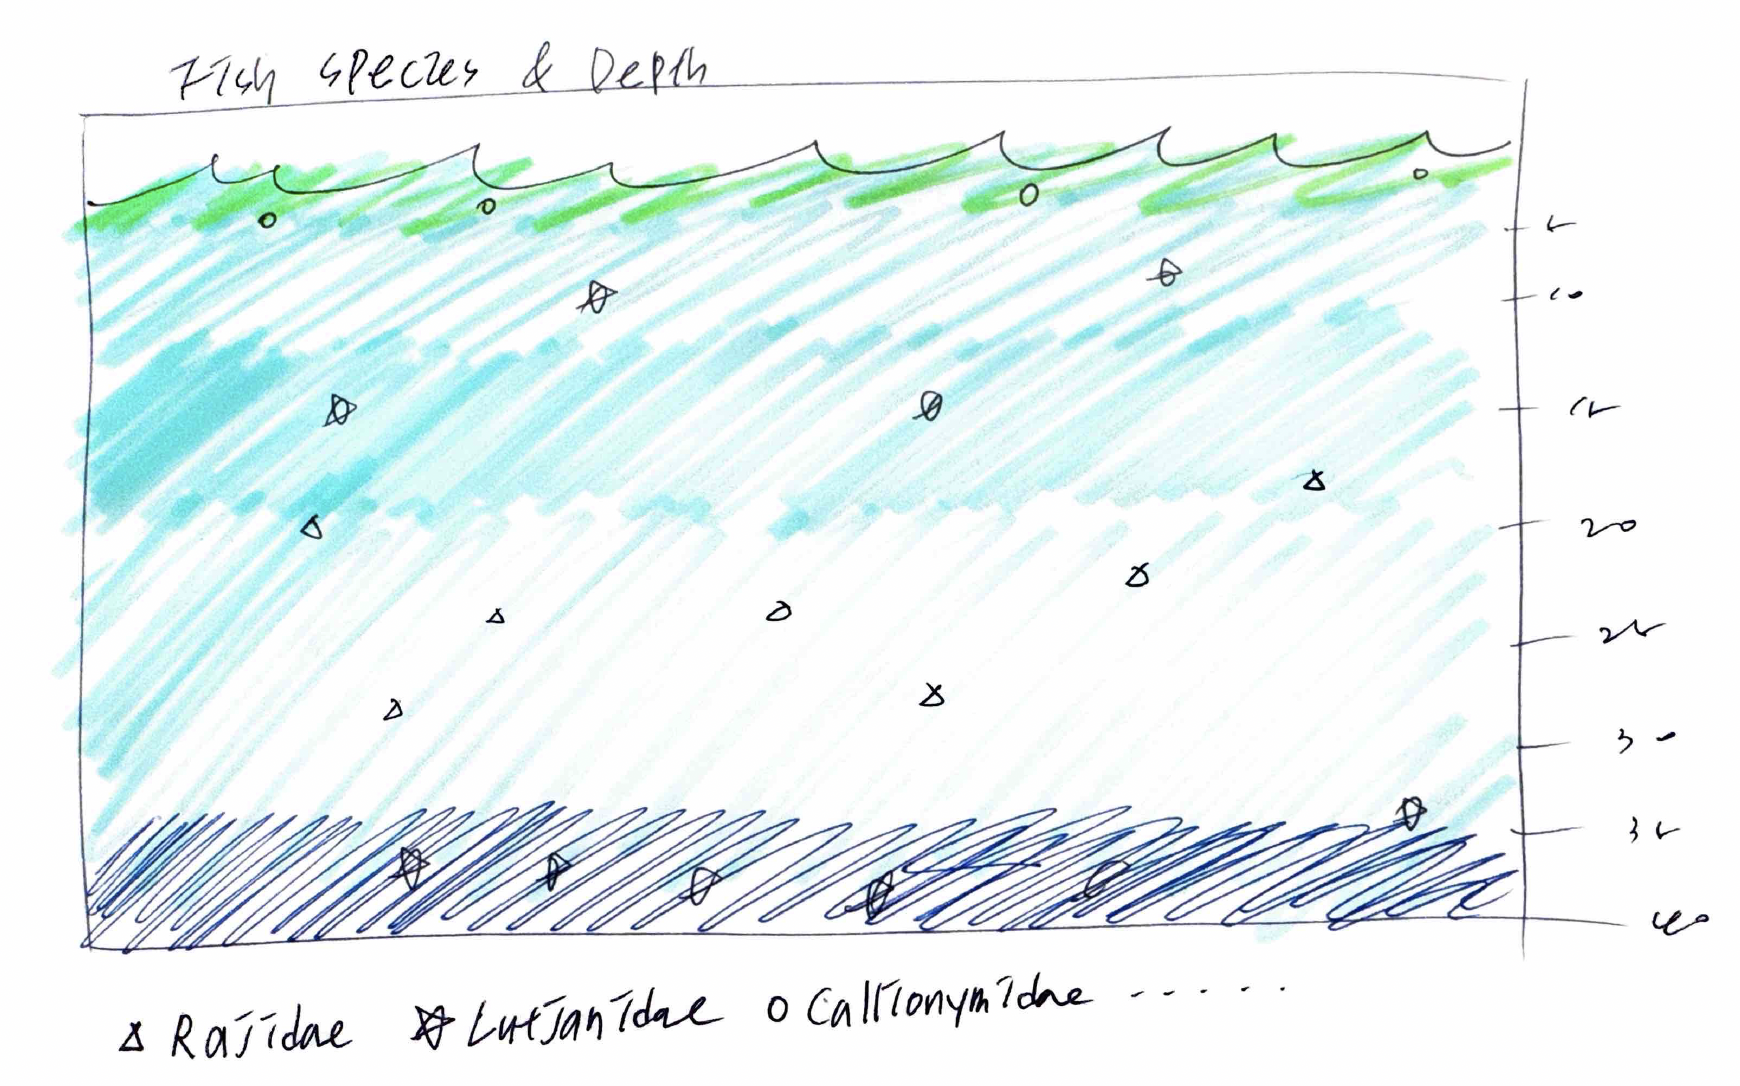 Fish species & Depth
5
10
15
20
25
30
35
40
Rajidae Lutjanidae Callionymidae ------